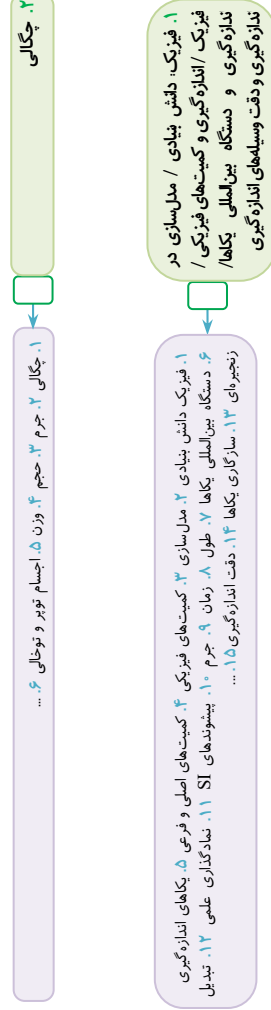 ۱. فیزیک: دانش بنیادی / مدل‌سازی در
فیزیک / اندازه‌گیری و کمیت‌های فیزیکی /
اندازه‌گیری و دستگاه بین‌المللی یکاها/
اندازه‌گیری و دقت وسیله‌های اندازه‌گیری
۱. فیزیک دانش بنیادی ۲. مدل‌سازی ۳. کمیت‌های فیزیکی ۴. کمیت‌های اصلی و فرعی ۵. یکاهای اندازه‌گیری
۶. دستگاه بین‌المللی یکاها ۷. طول ۸. زمان ۹. جرم ۱۰. پیشوندهای SI ۱۱. نمادگذاری علمی ۱۲. تبدیل
زنجیره‌ای ۱۳. سازگاری یکاها ۱۴. دقت اندازه‌گیری ۱۵. ...
۲. چگالی
۱. چگالی ۲. جرم ۳. حجم ۴. وزن ۵. اجسام توپر و توخالی ۶. ...